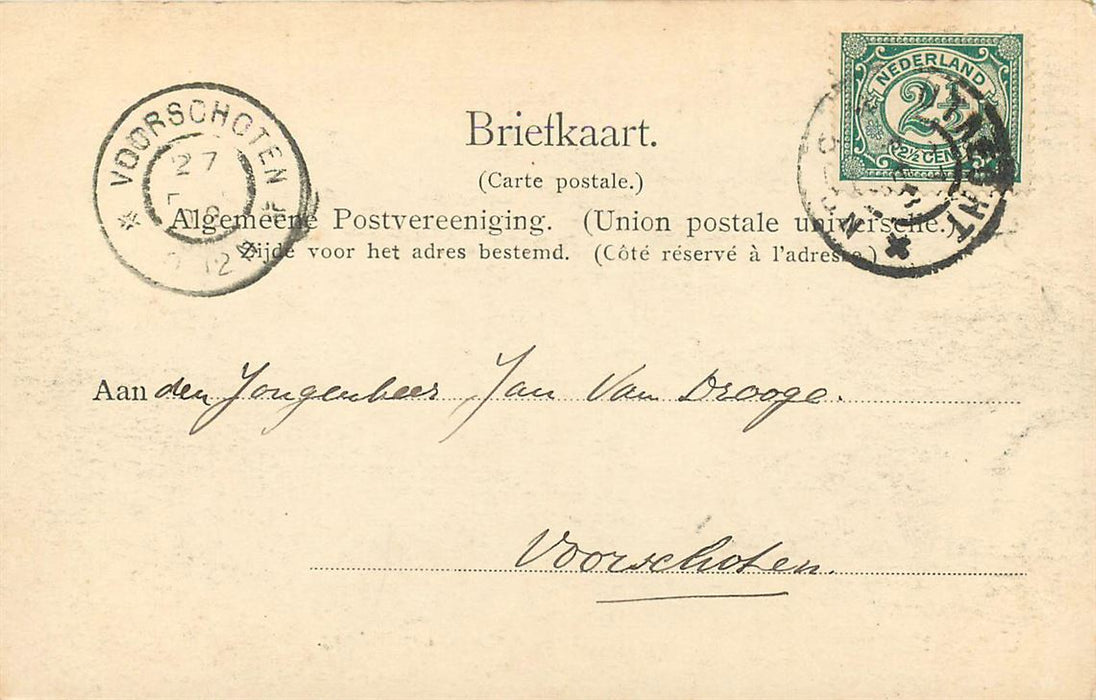 NEDERLAND
2½
2½ CENT
UTRECHT
VOORSCHOTEN
27
12
Briefkaart.
(Carte postale.)
Algemeene Postvereeniging. (Union postale universelle.)
Zijde voor het adres bestemd. (Côté réservé à l'adresse.)
Aan den Jongenheer Jan Van Drooge.
Voorschoten.